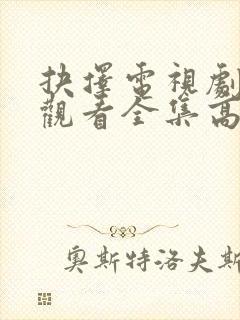 抉擇電視劇
觀看全集高
奧斯特洛夫斯